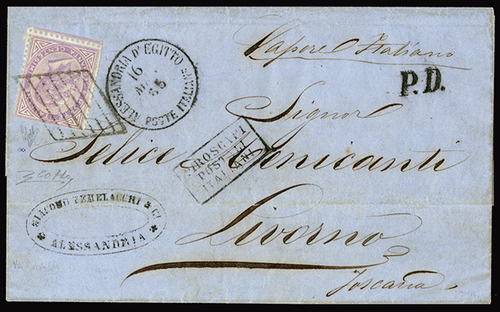 Vapore Italiano
ALESSANDRIA D'EGITTO
POSTE ITALIANE
16
65
P.D.
Signor
Felice
PIROSCAFI
POSTALI
ITALIANI
GIACOMO TEMELACCHI & C.
ALESSANDRIA
Livorno
Toscana